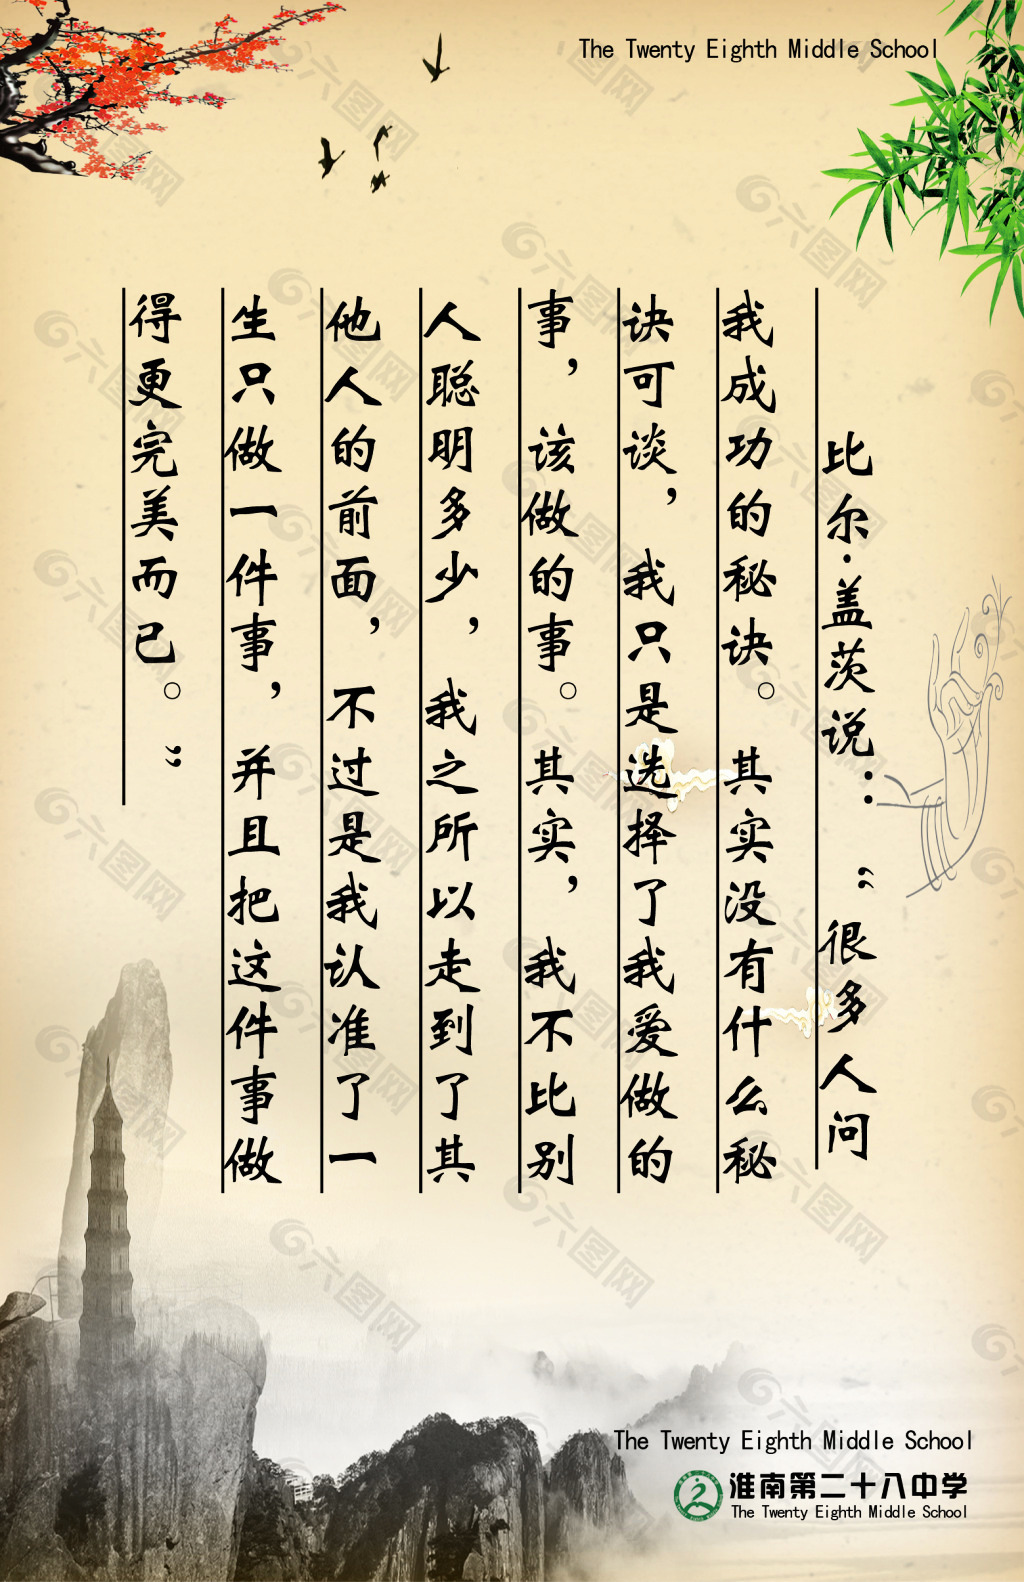 The Twenty Eighth Middle School
比尔·盖茨说：“很多人问
我成功的秘诀。其实没有什么秘
诀可谈，我只是选择了我爱做的
事，该做的事。其实，我不比别
人聪明多少，我之所以走到了其
他人的前面，不过是我认准了一
生只做一件事，并且把这件事做
得更完美而已。”
The Twenty Eighth Middle School
淮南第二十八中学
The Twenty Eighth Middle School
六图网